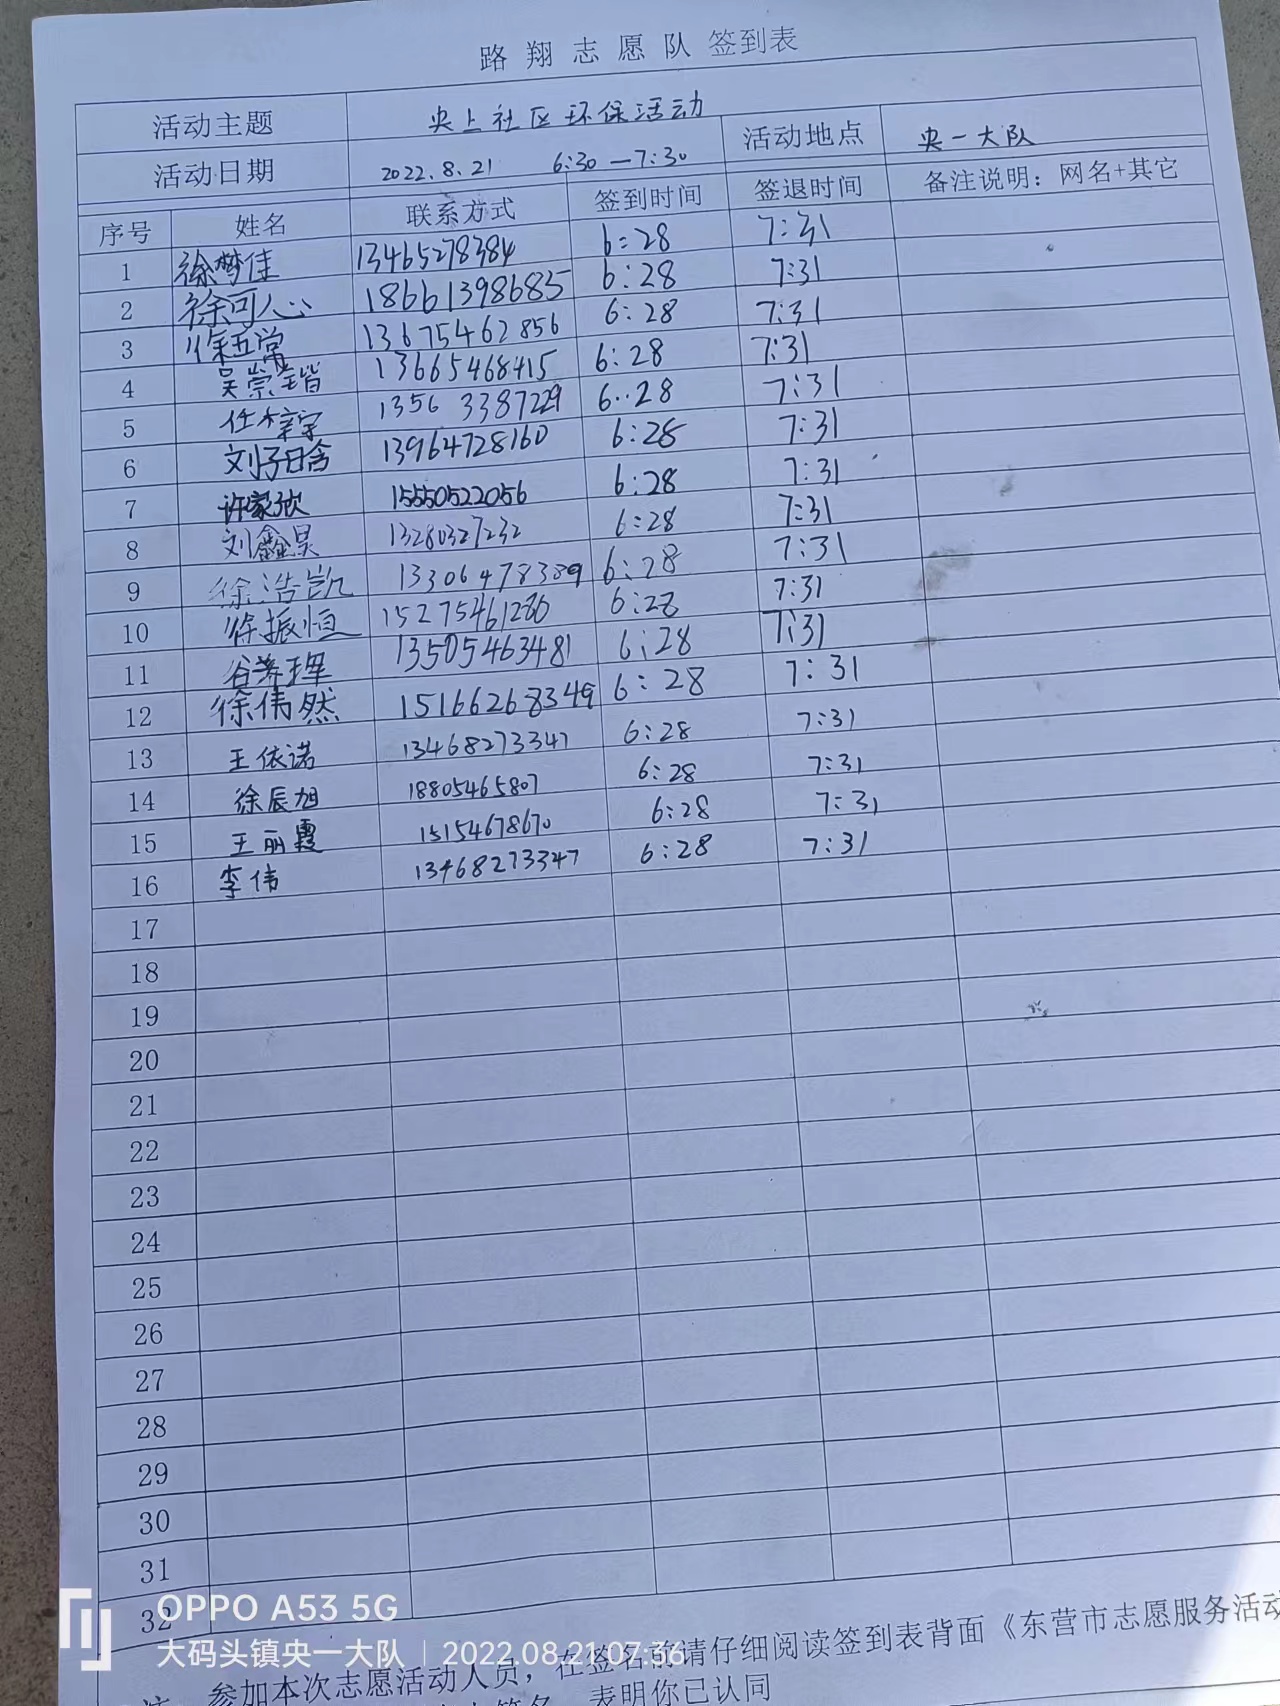 路翔志愿队 签到表
活动主题 央上社区环保活动
活动日期 2022.8.21 6:30—7:30 活动地点 央一大队
序号 姓名 联系方式 签到时间 签退时间 备注说明：网名+其它
1 徐梦佳 13465278384 6:28 7:31
2 徐可心 18661398685 6:28 7:31
3 徐五常 13675462856 6:28 7:31
4 吴崇 13665468415 6:28 7:31
5 任梓宇 13563387229 6:28 7:31
6 刘子晗 13964728160 6:28 7:31
7 许家欣 15550522056 6:28 7:31
8 刘鑫昊 13280327232 6:28 7:31
9 徐浩凯 13306478389 6:28 7:31
10 徐振恒 15275461286 6:28 7:31
11 谷 13505463481 6:28 7:31
12 徐伟然 15166268349 6:28 7:31
13 王依诺 13468273347 6:28 7:31
14 徐辰旭 18805465807 6:28 7:31
15 王丽霞 15154678670 6:28 7:31
16 李伟 13468273347 6:28 7:31
17
18
19
20
21
22
23
24
25
26
27
28
29
30
31
32
OPPO A53 5G
大码头镇央一大队 | 2022.08.21 07:36
参加本次志愿活动人员，在签名前请仔细阅读签到表背面《东营市志愿服务活动
表明你已认同